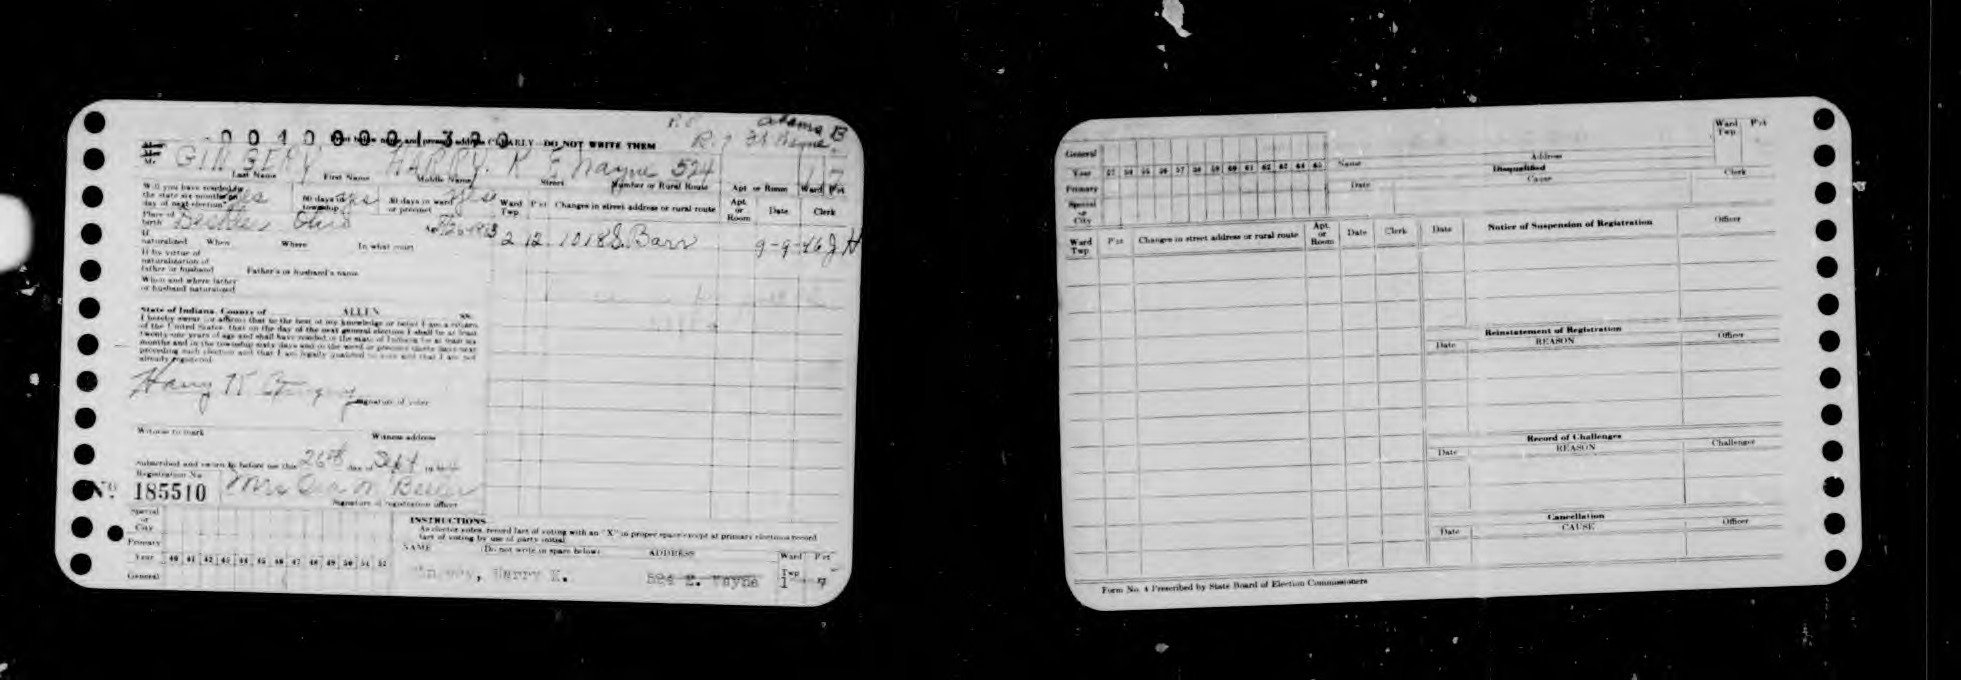 00100001320
Print below name and present address CLEARLY - DO NOT WRITE THEM
R. 7
Adams B
GINGERY HARRY. R E Wayne 524 1 7
Last Name First Name Middle Name Street Number or Rural Route Apt or Room Ward Pct
Will you have resided in
the state six months on
day of next election? Yes 60 days in township yes 30 days in ward or precinct yes
Ward Twp Pct Changes in street address or rural route Apt. or Room Date Clerk
Place of birth Ohio
2 12 1018 S. Barr 9-9-46 J H
If
naturalized When Where In what court
If by virtue of
naturalization of
father or husband Father's or husband's name
When and where father
or husband naturalized
State of Indiana, County of ALLEN SS:
I hereby swear (or affirm) that to the best of my knowledge or belief I am a citizen
of the United States, that on the day of the next general election I shall be at least
twenty-one years of age and shall have resided in the state of Indiana for at least six
months and in the township sixty days and in the ward or precinct thirty days next
preceding such election and that I am legally qualified to vote and that I am not
already registered.
Harry R Gingery
Signature of voter
Witness to mark Witness address
Subscribed and sworn to before me this 26th day of Sept 1944
Registration No.
No. 185510 Mrs
Signature of registration officer
Special
or
City
Primary
Year 40 41 42 43 44 45 46 47 48 49 50 51 52
General
INSTRUCTIONS
As elector votes, record fact of voting with an "X" in proper space except at primary elections record
fact of voting by use of party initial
NAME (Do not write in space below) ADDRESS Ward Twp Pct
Gingery, Harry R. 524 E. Wayne 1 7
General
Year 53 54 55 56 57 58 59 60 61 62 63 64 65
Primary
Special
or
City
Name Address Ward Twp Pct
Disqualified
Date Cause Clerk
Ward Twp Pct Changes in street address or rural route Apt. or Room Date Clerk
Date Notice of Suspension of Registration Officer
Reinstatement of Registration
Date REASON Officer
Record of Challenges
Date REASON Challenger
Cancellation
Date CAUSE Officer
Form No. 4 Prescribed by State Board of Election Commissioners